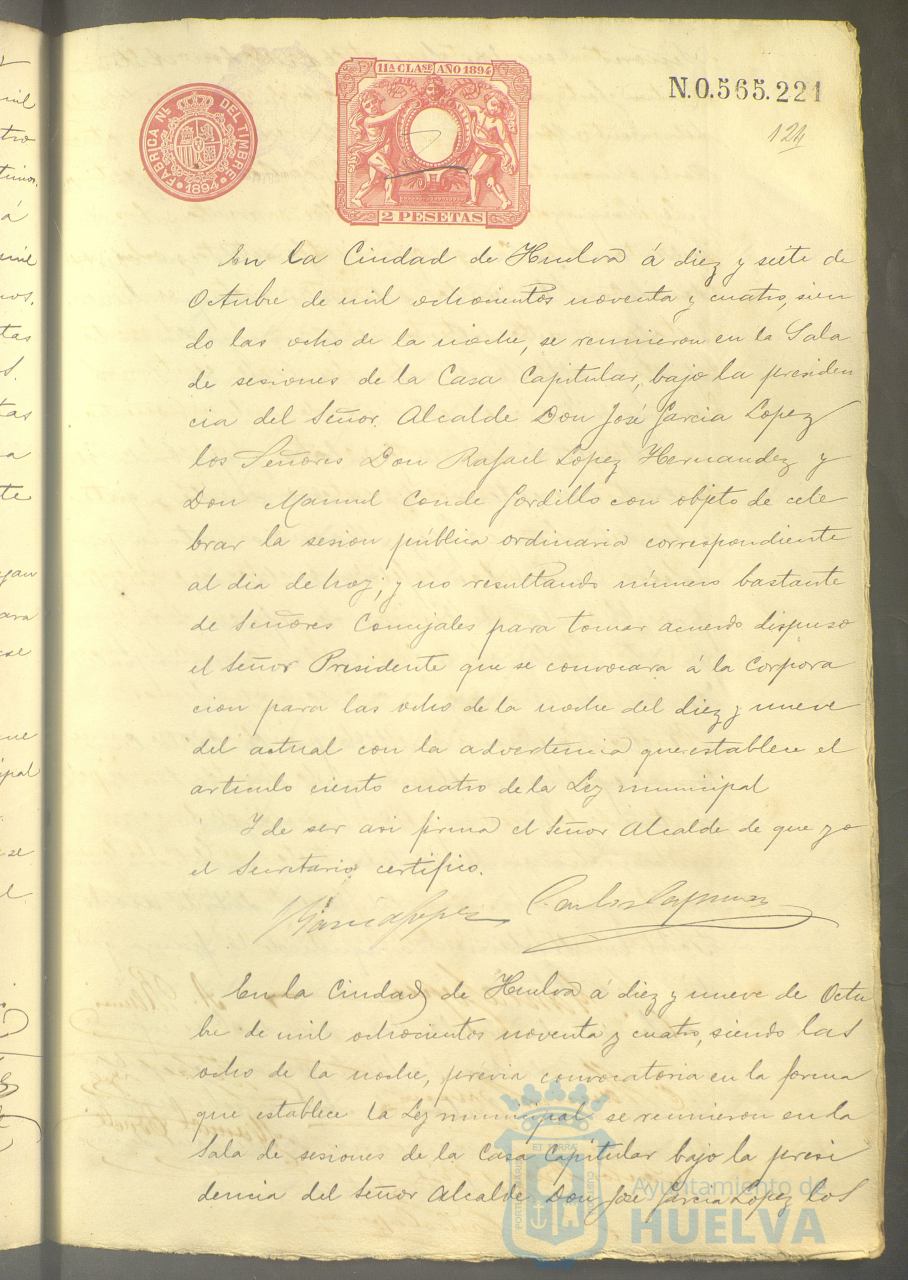 FABRICA NL. DEL TIMBRE
1894
11ª CLASE AÑO 1894
2 PESETAS
N.0.565.221
124
En la Ciudad de Huelva á diez y siete de
Octubre de mil ochocientos noventa y cuatro, sien
do las ocho de la noche, se reunieron en la Sala
de sesiones de la Casa Capitular, bajo la presiden
cia del Señor Alcalde Don José Garcia Lopez
los Señores Don Rafael Lopez Hernandez y
Don Manuel Conde Gordillo con objeto de cele
brar la sesion pública ordinaria correspondiente
al dia de hoy; y no resultando número bastante
de Señores Concejales para tomar acuerdo dispuso
el Señor Presidente que se convocara á la Corpora
cion para las ocho de la noche del diez y nueve
del actual con la advertencia que establece el
articulo ciento cuatro de la Ley municipal
Y de ser asi firma el Señor Alcalde de que yo
el Secretario certifico.
Garcia Lopez
Carlos
En la Ciudad de Huelva á diez y nueve de Octu
bre de mil ochocientos noventa y cuatro, siendo las
ocho de la noche, previa convocatoria en la forma
que establece la Ley municipal se reunieron en la
Sala de sesiones de la Casa Capitular bajo la presi
dencia del Señor Alcalde Don José Garcia Lopez los
Ayuntamiento de
HUELVA